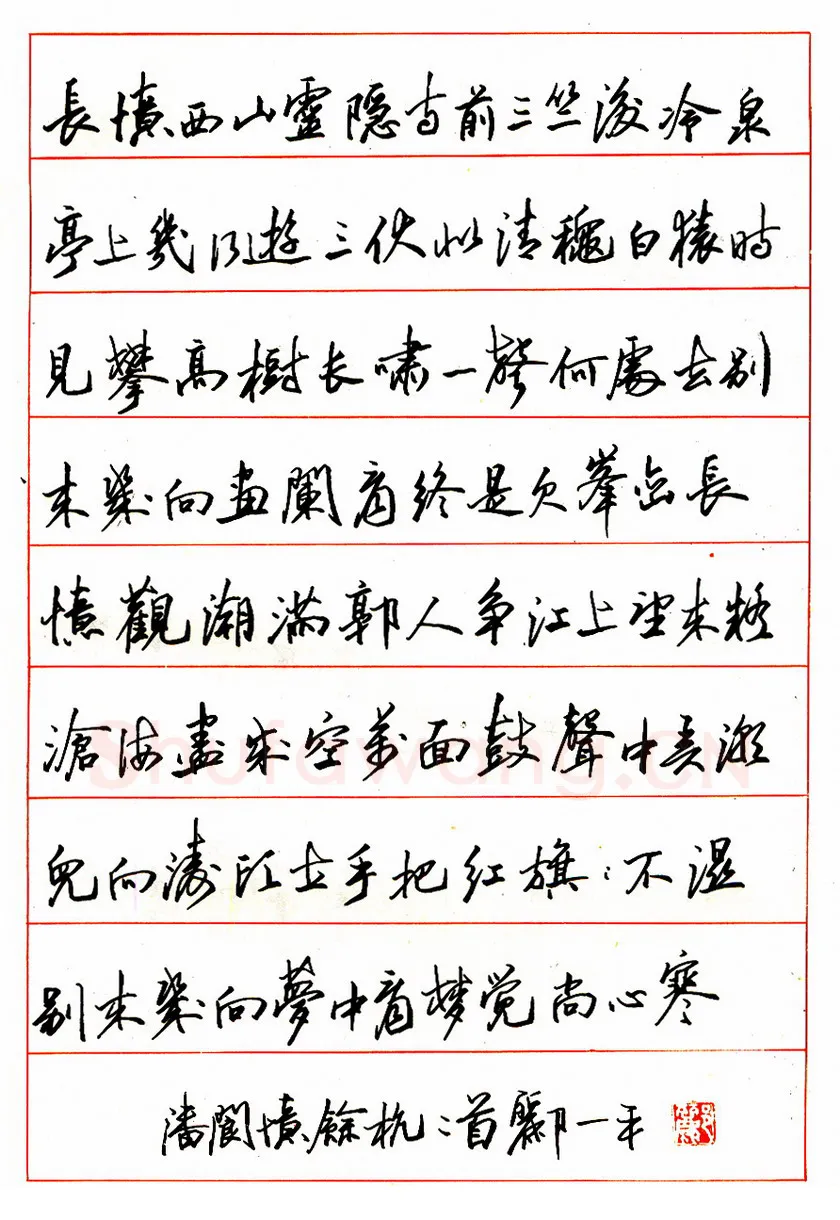 長憶西山靈隱寺前三竺後冷泉
亭上幾行遊三伏似清龝白猿時
見攀高樹长嘯一聲何處去别
来幾向畫闌看終是欠峯巒長
憶觀潮滿郭人争江上望来疑
滄海盡成空萬面鼓聲中弄潮
兒向濤頭立手把红旗:不濕
别来幾向夢中看梦觉尚心寒
潘閬憶餘杭:首鄺一平
Shufawang.CN